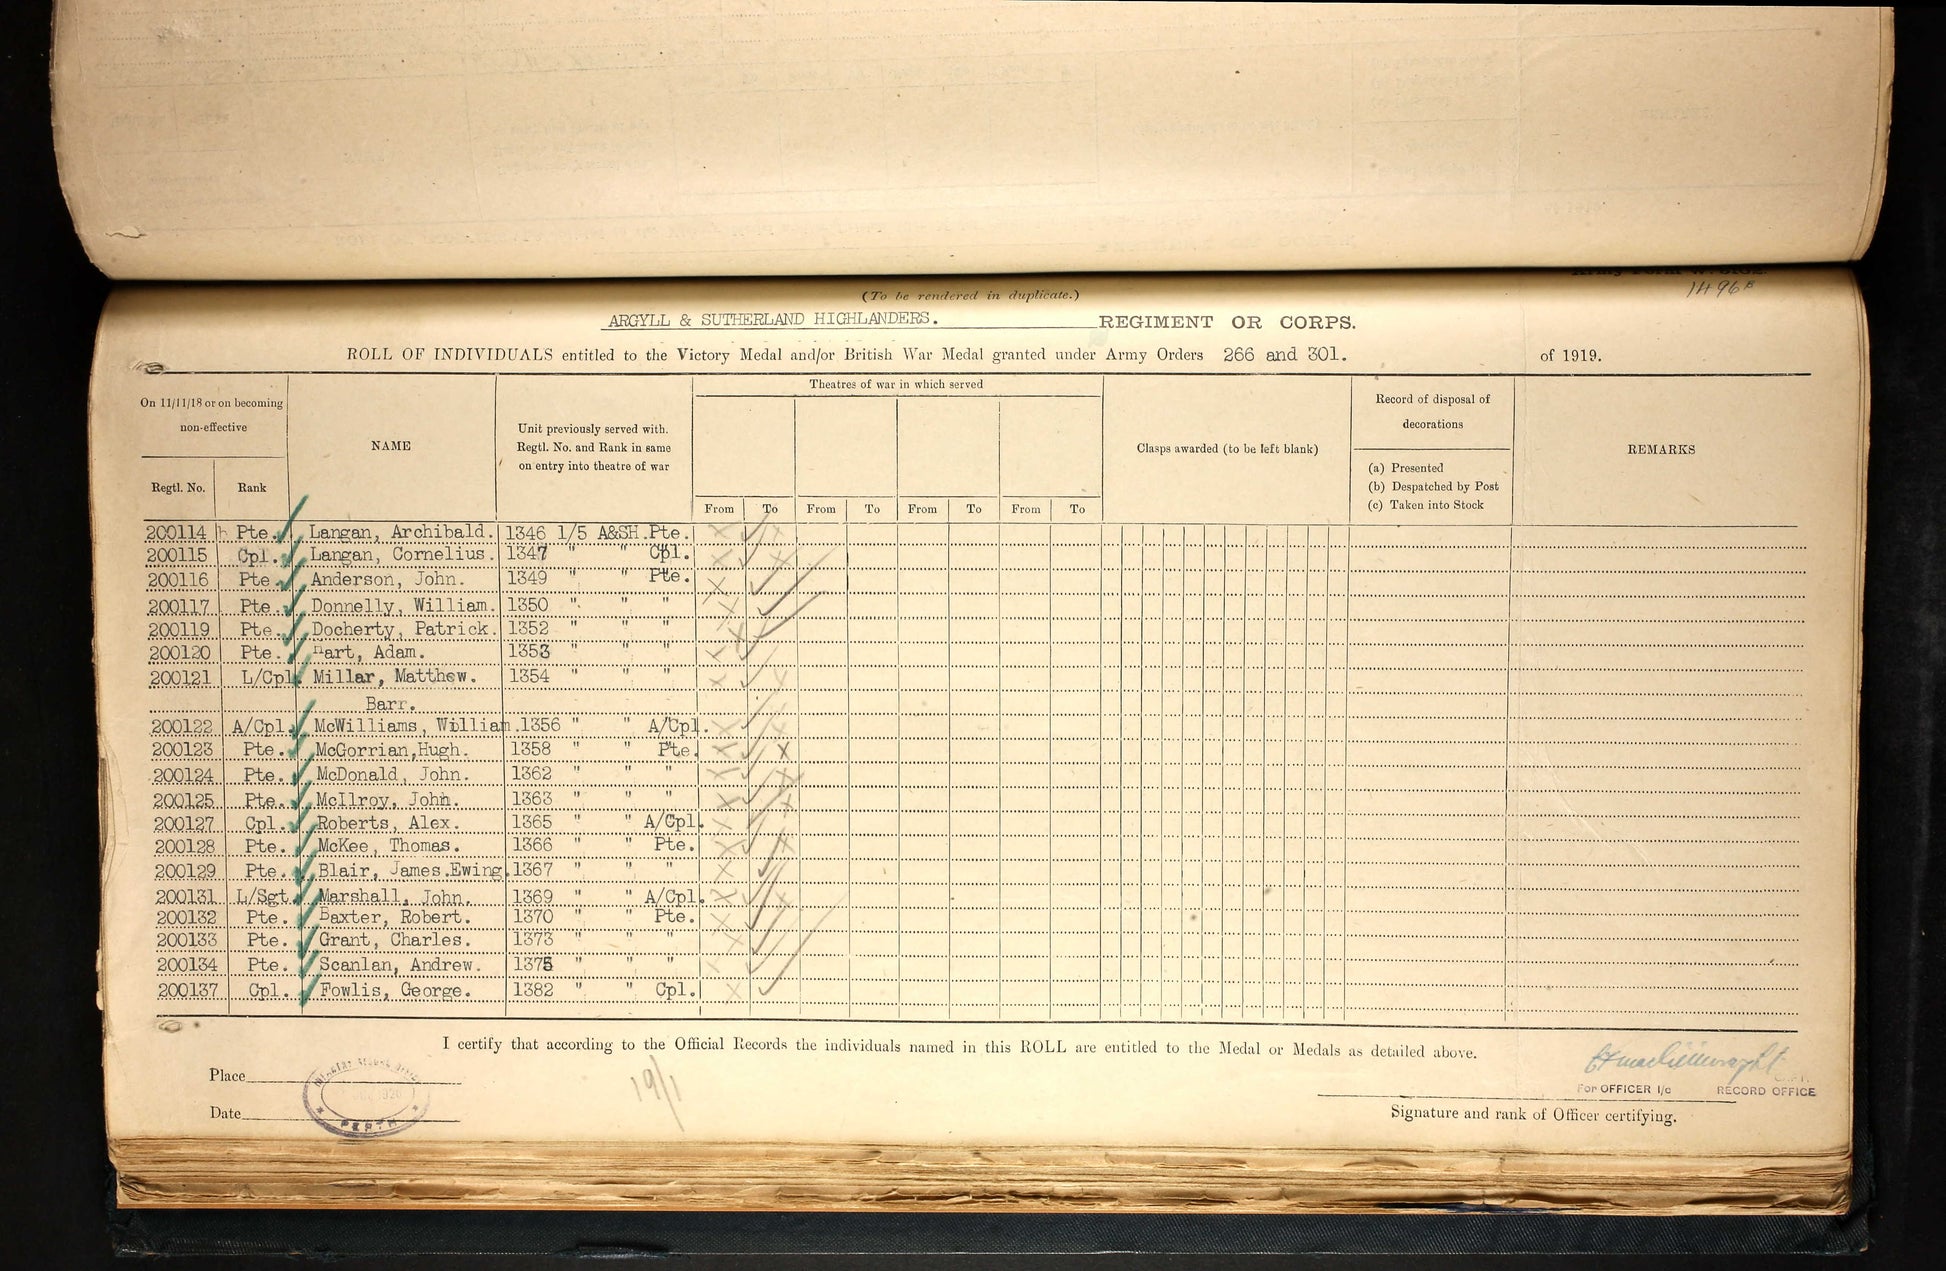 1496B
(To be rendered in duplicate.)
ARGYLL & SUTHERLAND HIGHLANDERS. REGIMENT OR CORPS.
ROLL OF INDIVIDUALS entitled to the Victory Medal and/or British War Medal granted under Army Orders 266 and 301. of 1919.
On 11/11/18 or on becoming non-effective
Regtl. No.
Rank
NAME
Unit previously served with.
Regtl. No. and Rank in same
on entry into theatre of war
Theatres of war in which served
From To From To From To From To
Clasps awarded (to be left blank)
Record of disposal of
decorations
(a) Presented
(b) Despatched by Post
(c) Taken into Stock
REMARKS
200114 Pte. Langan, Archibald. 1346 1/5 A&SH. Pte.
200115 Cpl. Langan, Cornelius. 1347 " " Cpl.
200116 Pte. Anderson, John. 1349 " " Pte.
200117 Pte. Donnelly, William. 1350 " " "
200119 Pte. Docherty, Patrick. 1352 " " "
200120 Pte. Hart, Adam. 1353 " " "
200121 L/Cpl. Millar, Matthew. 1354 " " "
Barr.
200122 A/Cpl. McWilliams, William. 1356 " " A/Cpl.
200123 Pte. McGorrian, Hugh. 1358 " " Pte.
200124 Pte. McDonald, John. 1362 " " "
200125 Pte. McIlroy, John. 1363 " " "
200127 Cpl. Roberts, Alex. 1365 " " A/Cpl.
200128 Pte. McKee, Thomas. 1366 " " Pte.
200129 Pte. Blair, James.Ewing. 1367 " " "
200131 L/Sgt. Marshall, John. 1369 " " A/Cpl.
200132 Pte. Baxter, Robert. 1370 " " Pte.
200133 Pte. Grant, Charles. 1373 " " "
200134 Pte. Scanlan, Andrew. 1375 " " "
200137 Cpl. Fowlis, George. 1382 " " Cpl.
I certify that according to the Official Records the individuals named in this ROLL are entitled to the Medal or Medals as detailed above.
Place
Date
1920
PERTH
19/1
For OFFICER I/c RECORD OFFICE
Signature and rank of Officer certifying.